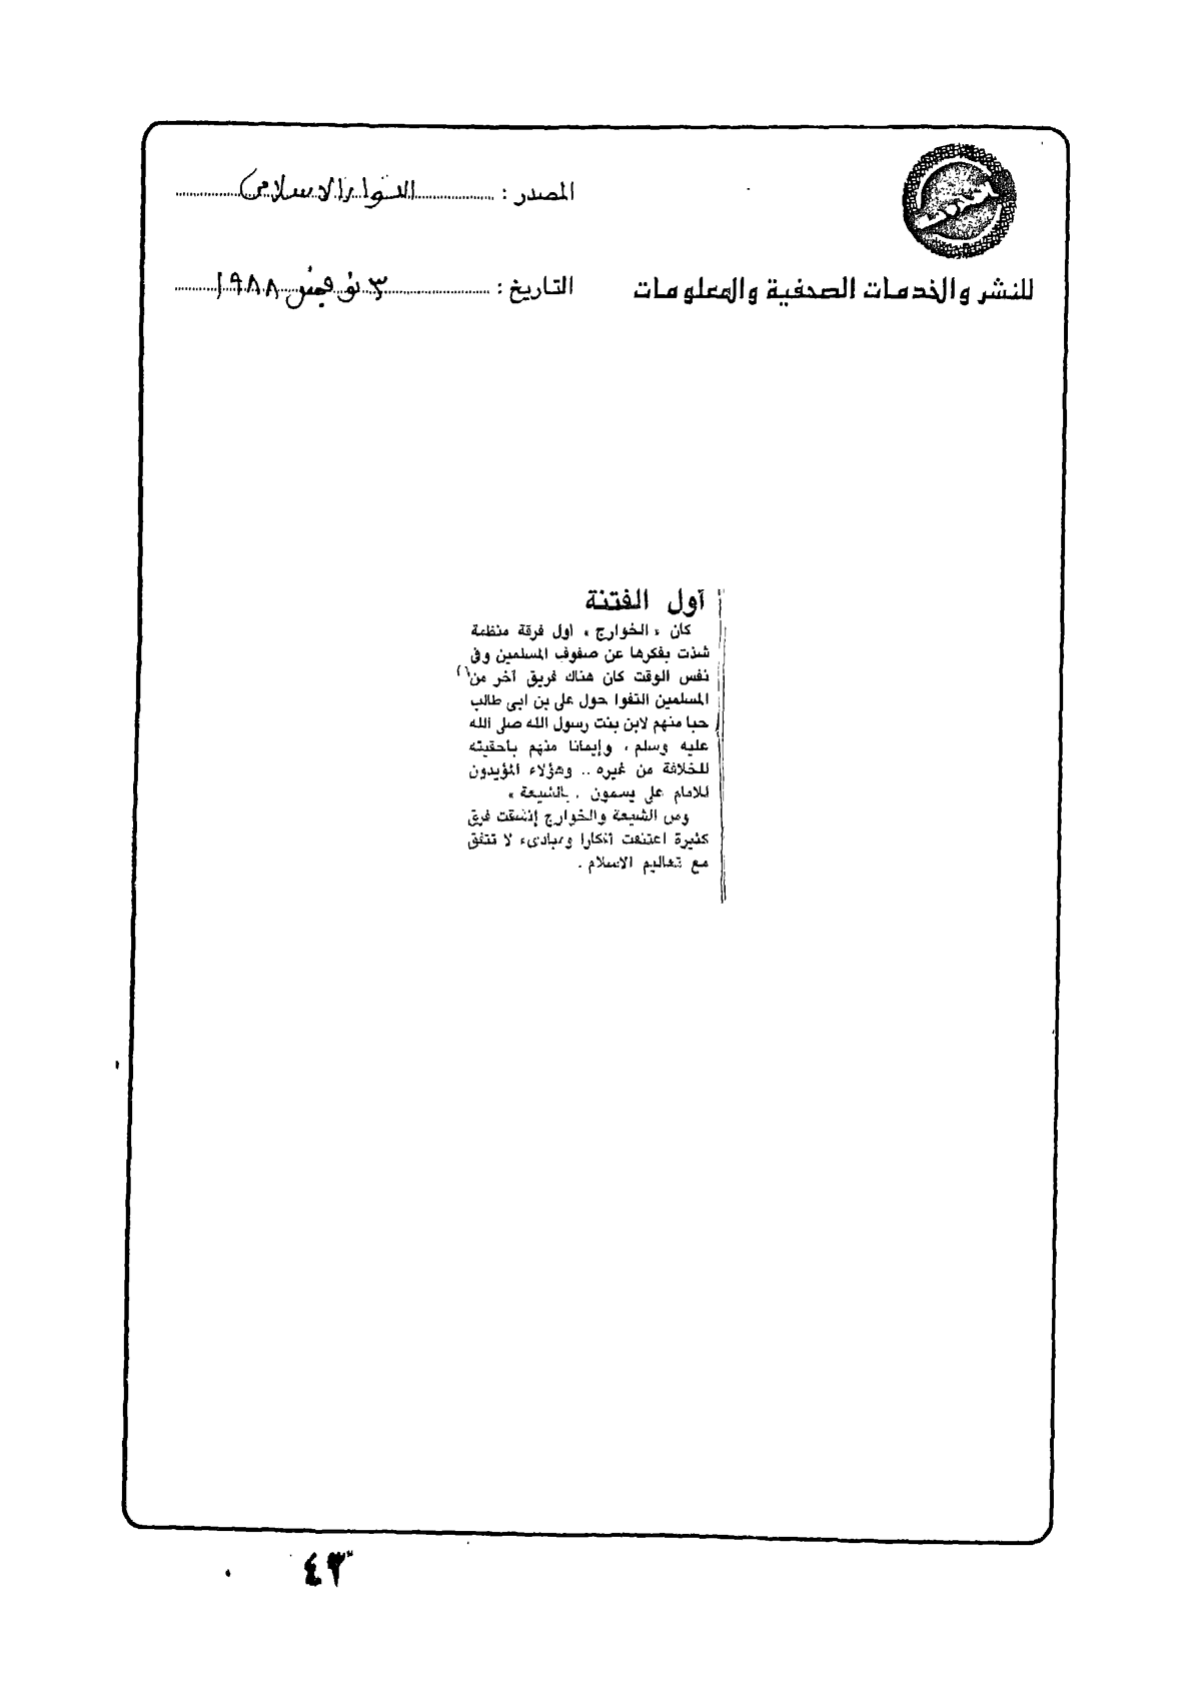 المصدر : اللواء الاسلامى
للنشر والخدمات الصحفية والمعلومات
التاريخ : ٣ نوفمبر ١٩٨٨
أول الفتنة
كان « الخوارج » اول فرقة منظمة
شذت بفكرها عن صفوف المسلمين وفى
نفس الوقت كان هناك فريق آخر من
المسلمين التفوا حول على بن ابى طالب
حبا منهم لابن بنت رسول الله صلى الله
عليه وسلم ، وإيمانا منهم بأحقيته
للخلافة من غيره .. وهؤلاء المؤيدون
للامام على يسمون « بالشيعة »
ومن الشيعة والخوارج إنشقت فرق
كثيرة اعتنقت أفكارا ومبادىء لا تتفق
مع تعاليم الاسلام .
٤٣